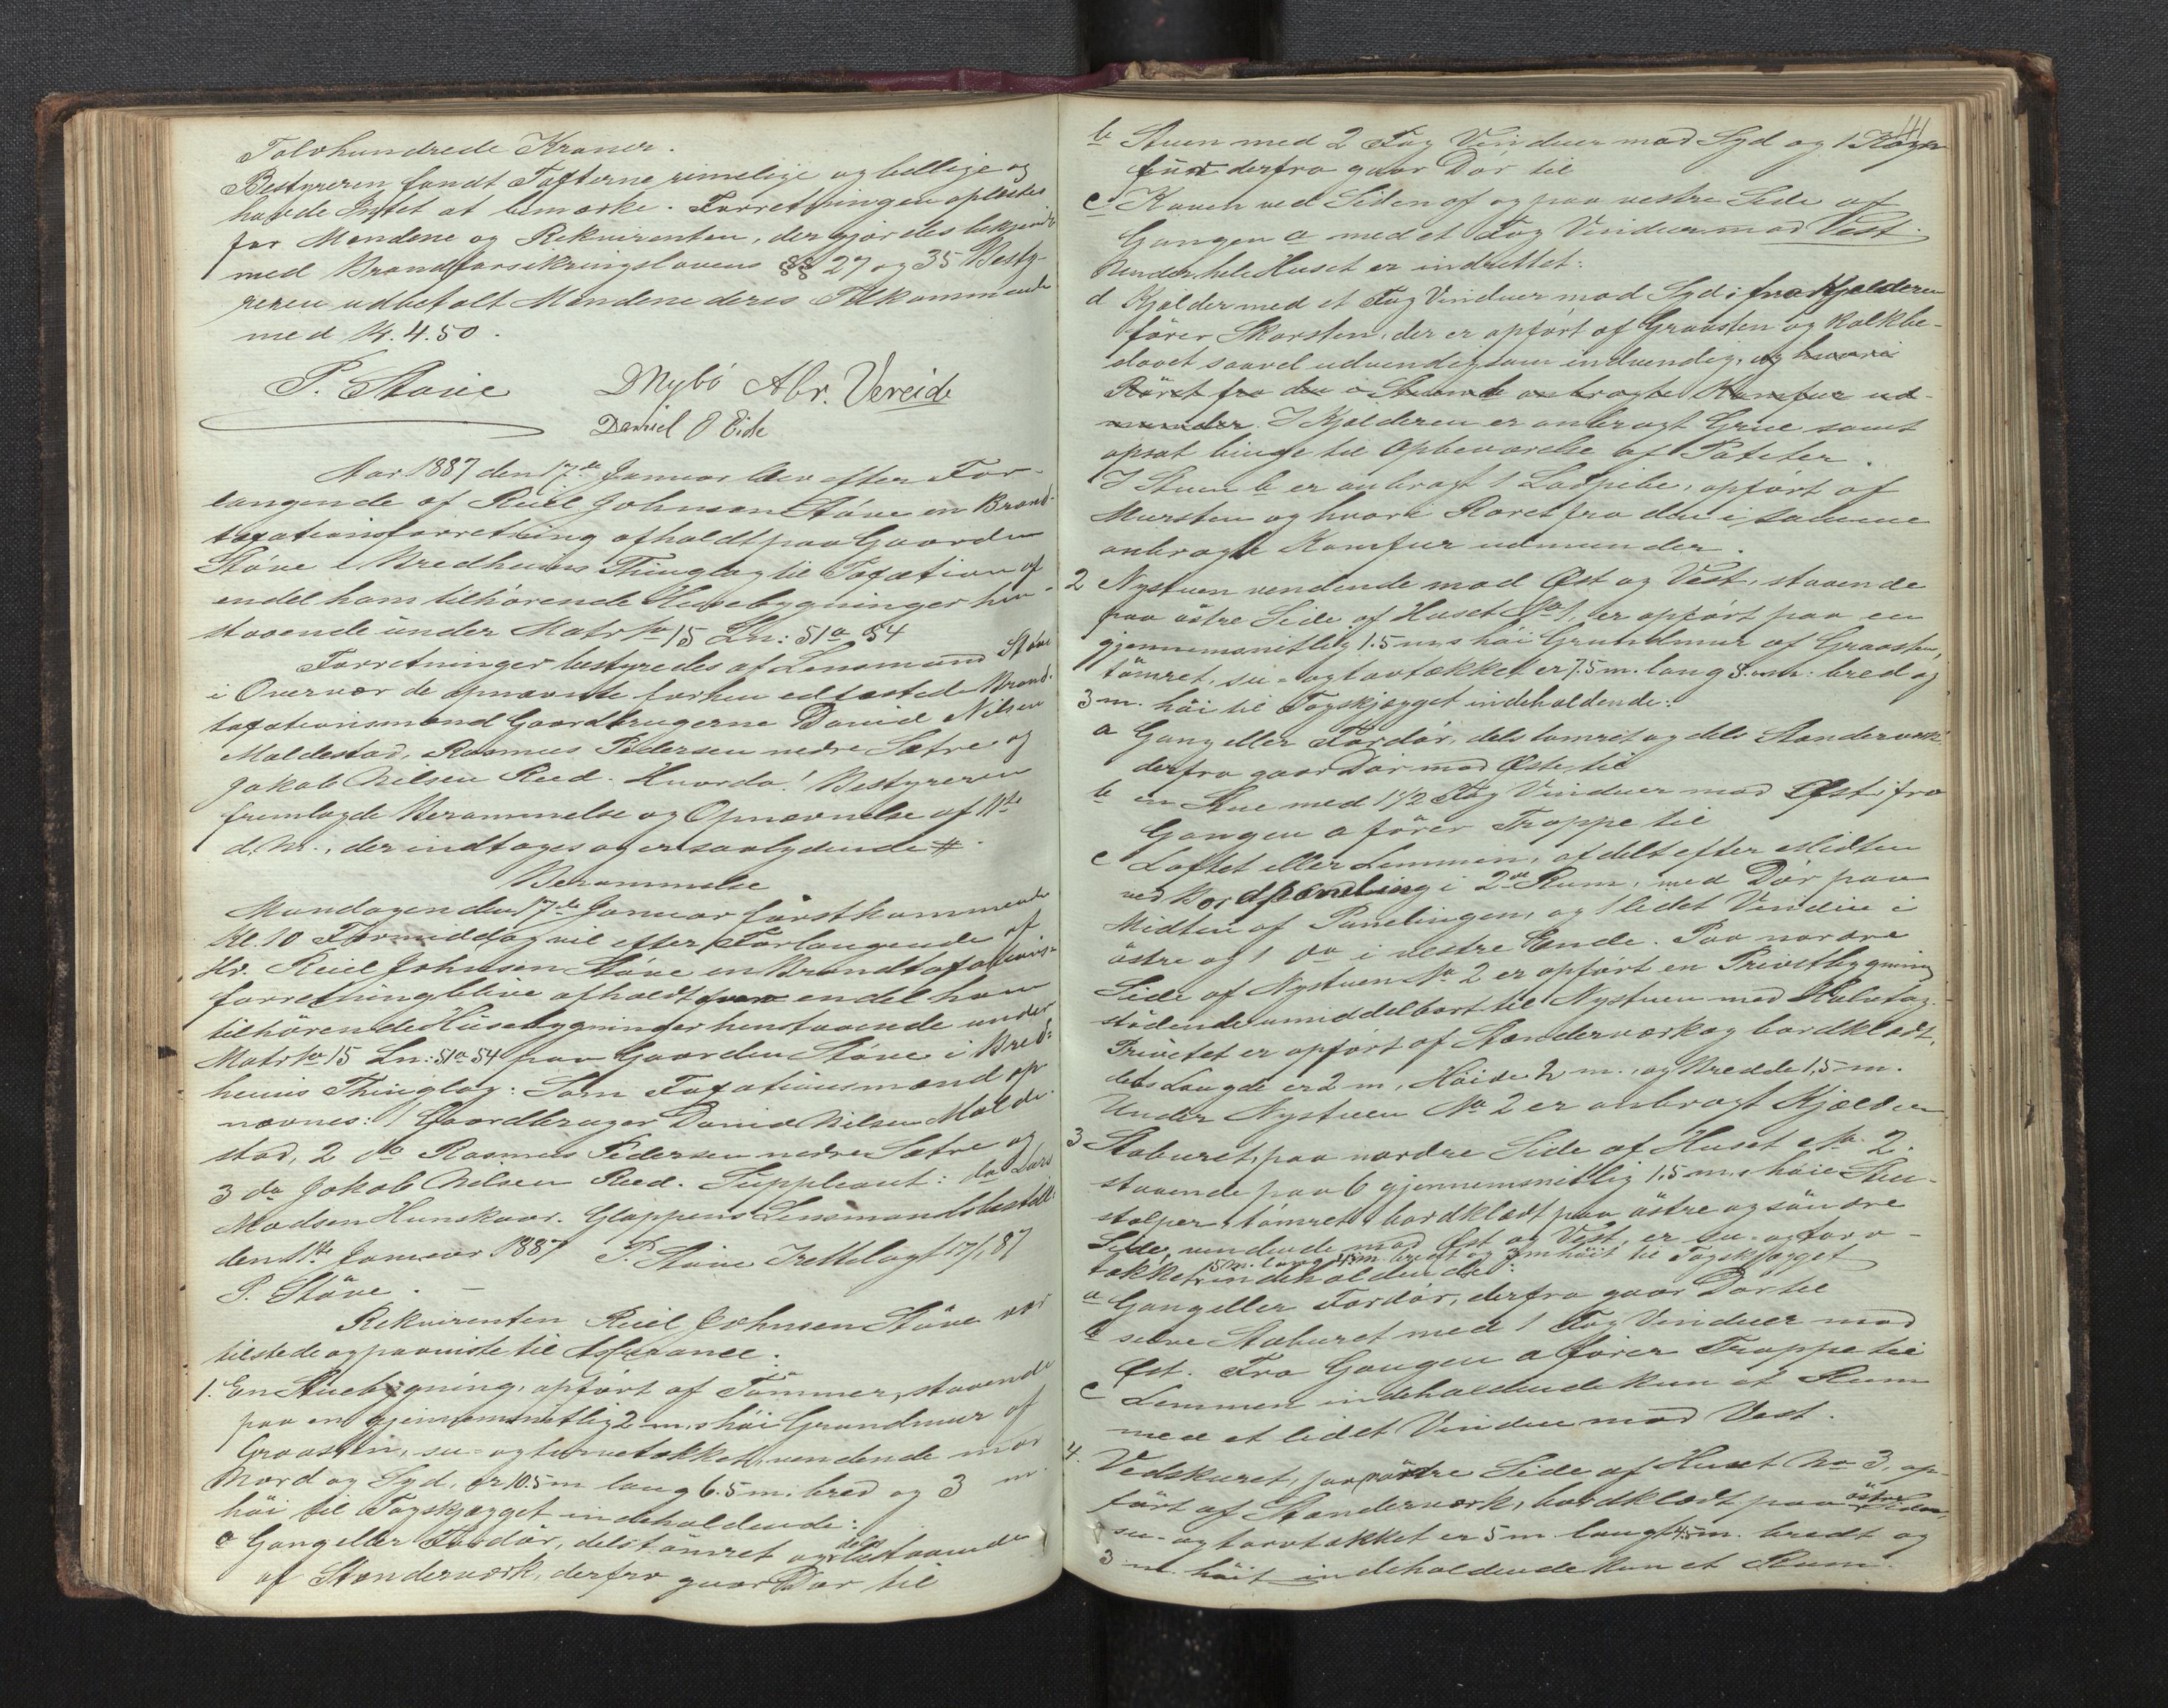 Tolvhundrede Kroner.
Bestyreren fandt Taxterne rimelige og billige og
havde Intet at bemærke. Forretningen oplæstes
for Mændene og Rekvirenten, der gjordes bekjendt
med Brandforsikringslovens §§ 27 og 35 Besty-
reren udbetalt Mændene deres Tilkommende
med Kr. 4.50.
P. Støve DMybö Abr. Vereide
Daniel J Eide
Aar 1887 den 17de Januar blev efter For-
langende af Reiel Johnsen Støve en Brand-
taxationsforretning afholdt paa Gaarden
Støve i Bredheims Thinglag til Taxation af
endel ham tilhørende Husebygninger hen-
staaende under Matr No 15 Ln: 51a 54
Forretninger bestyredes af Lensmand Støve
i Overvær de opnævnte forhen edfæstede Brand-
taxationsmænd Gaardbrugerne Daniel Nilsen
Maldestad, Rasmus Pedersen nedre Sætre og
Jakob Nilsen Reed. Hvorda! Bestyreren
fremlagde Berammelse og Opnævnelse af 11te
d. M., der indtages og er saalydende #.
Berammelse
Mandagen den 17de Januar førstkommende
Kl. 10 Formiddag vil efter Forlangende af
Hr. Reiel Johnsen Støve en Brandtaxations-
forretning blive afholdt over endel ham
tilhørende Husebygninger henstaaende under
Matr No 15 Ln: 51a 54 paa Gaarden Støve i Bred-
heims Thinglag: Som Taxationsmænd op-
nævnes: 1 Gaardbruger Daniel Nilsen Malde-
stad, 2 do Rasmus Pedersen nedre Sætre og
3 do Jakob Nilsen Reed. Suppleant: do Lars
Madsen Hunskaar. Gloppens Lensmandsbestill:
den 11te Januar 1887 P. Støve Fremlagt 17/1 87
P. Støve. —
Rekvirenten Reiel Johnsen Støve var
tilstede og paaviste til Assurance:
1. En Stuebygning, opført af Tømmer, staaende
paa en gjennemsnitlig 2 m. høi Grundmur af
Graasten, su- og turvetækket, vendende mod
Nord og Syd, er 10.5 m lang 6.5 m. bred og 3 m
høi til Tagskjægget indeholdende:
a Gang eller Fordør, dels tømret og dels bestaaende
af Stænderværk, derfra gaar Dør til
141
b Stuen med 2 Fag Vinduer mod Syd og 1 Kogn
fur derfra gaar Dør til
c Kaven ved Siden af og paa vestre Side af
Gangen a med et Fag Vinduer mod Vest.
Under hele Huset er indrettet:
d Kjelder med et Fag Vinduer mod Syd; fra Kjælderen
fører Skorsten, der er opført af Graasten og Kalkbe-
slaaet saavel udvendig som indvendig, og hvori
Røret fra den i Stuen b anbragte Komfur ud-
munder. I Kjælderen er anbragt Grue samt
opsat binge til Opbevarelse af Poteter.
I Stuen b er anbragt 1 Ladpibe, opført af
Mursten og hvori Røret fra den i samme
anbragte Komfur udmunder.
2 Nystuen vendende mod Øst og Vest, staaende
paa østre Side af Huset No 1, er opført paa en
gjennemsnitlig 1.5 m. høi Grundmur af Graasten,
tømret, su- og torvtækket er 7.5 m. lang 5. m. bred og
3 m. høi til Tagskjægget indeholdende:
a Gang eller Fordør, dels tømret og dels Stænderværk,
derfra gaar Dør mod Øste, til
b en Stue med 1 1/2 Fag Vinduer mod Øst; fra
Gangen a fører Trappe til
c Loftet eller Lemmen, afdelt efter Midten
ved Bordpaneling i 2de Rum, med Dør paa
Midten af Panelingen, og 1 lidet Vindue i
østre og 1 do i vestre Ende. Paa nordre
Side af Nystuen No 2 er opført en Privetbygning
stødende umiddelbart til Nystuen med Halvtag.
Privetet er opført af Stænderværk og bordklædt,
dets Længde er 2 m, Høide 2 m., og Bredde 1,5 m.
Under Nystuen No 2 er anbragt Kjælder
3 Staburet, paa nordre Side af Huset No. 2.
staaende paa 6 gjennemsnitlig 1.5 m. høie Sten-
stolper, tømret, bordklædt paa østre og søndre
Side, vendende mod Øst og Vest, er su- og torv-
5 m. lang 4.5 m. bredt og 3 m høit til Tagskjægget
tækket, indeholdende:
a Gang eller Fordør, derfra gaar Dør til
b selve Staburet med 1 Fag Vinduer mod
Øst. Fra Gangen a fører Trappe til
c Lemmen indeholdende kun et Rum
med et lidet Vindue mod Vest.
4. Vedskuret, paa nordre Side af Huset No 3, op-
ført af Stænderværk, bordklædt paa østre Side,
su- og torvtækket er 5 m. langt 4.5 m. bredt og
3 m. høit indeholdende kun et Rum.